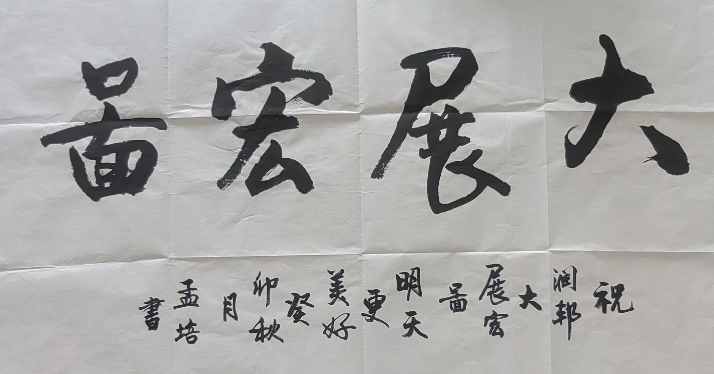 大展宏啚
祝润邦大展宏啚明天更美好癸卯秋月孟培書